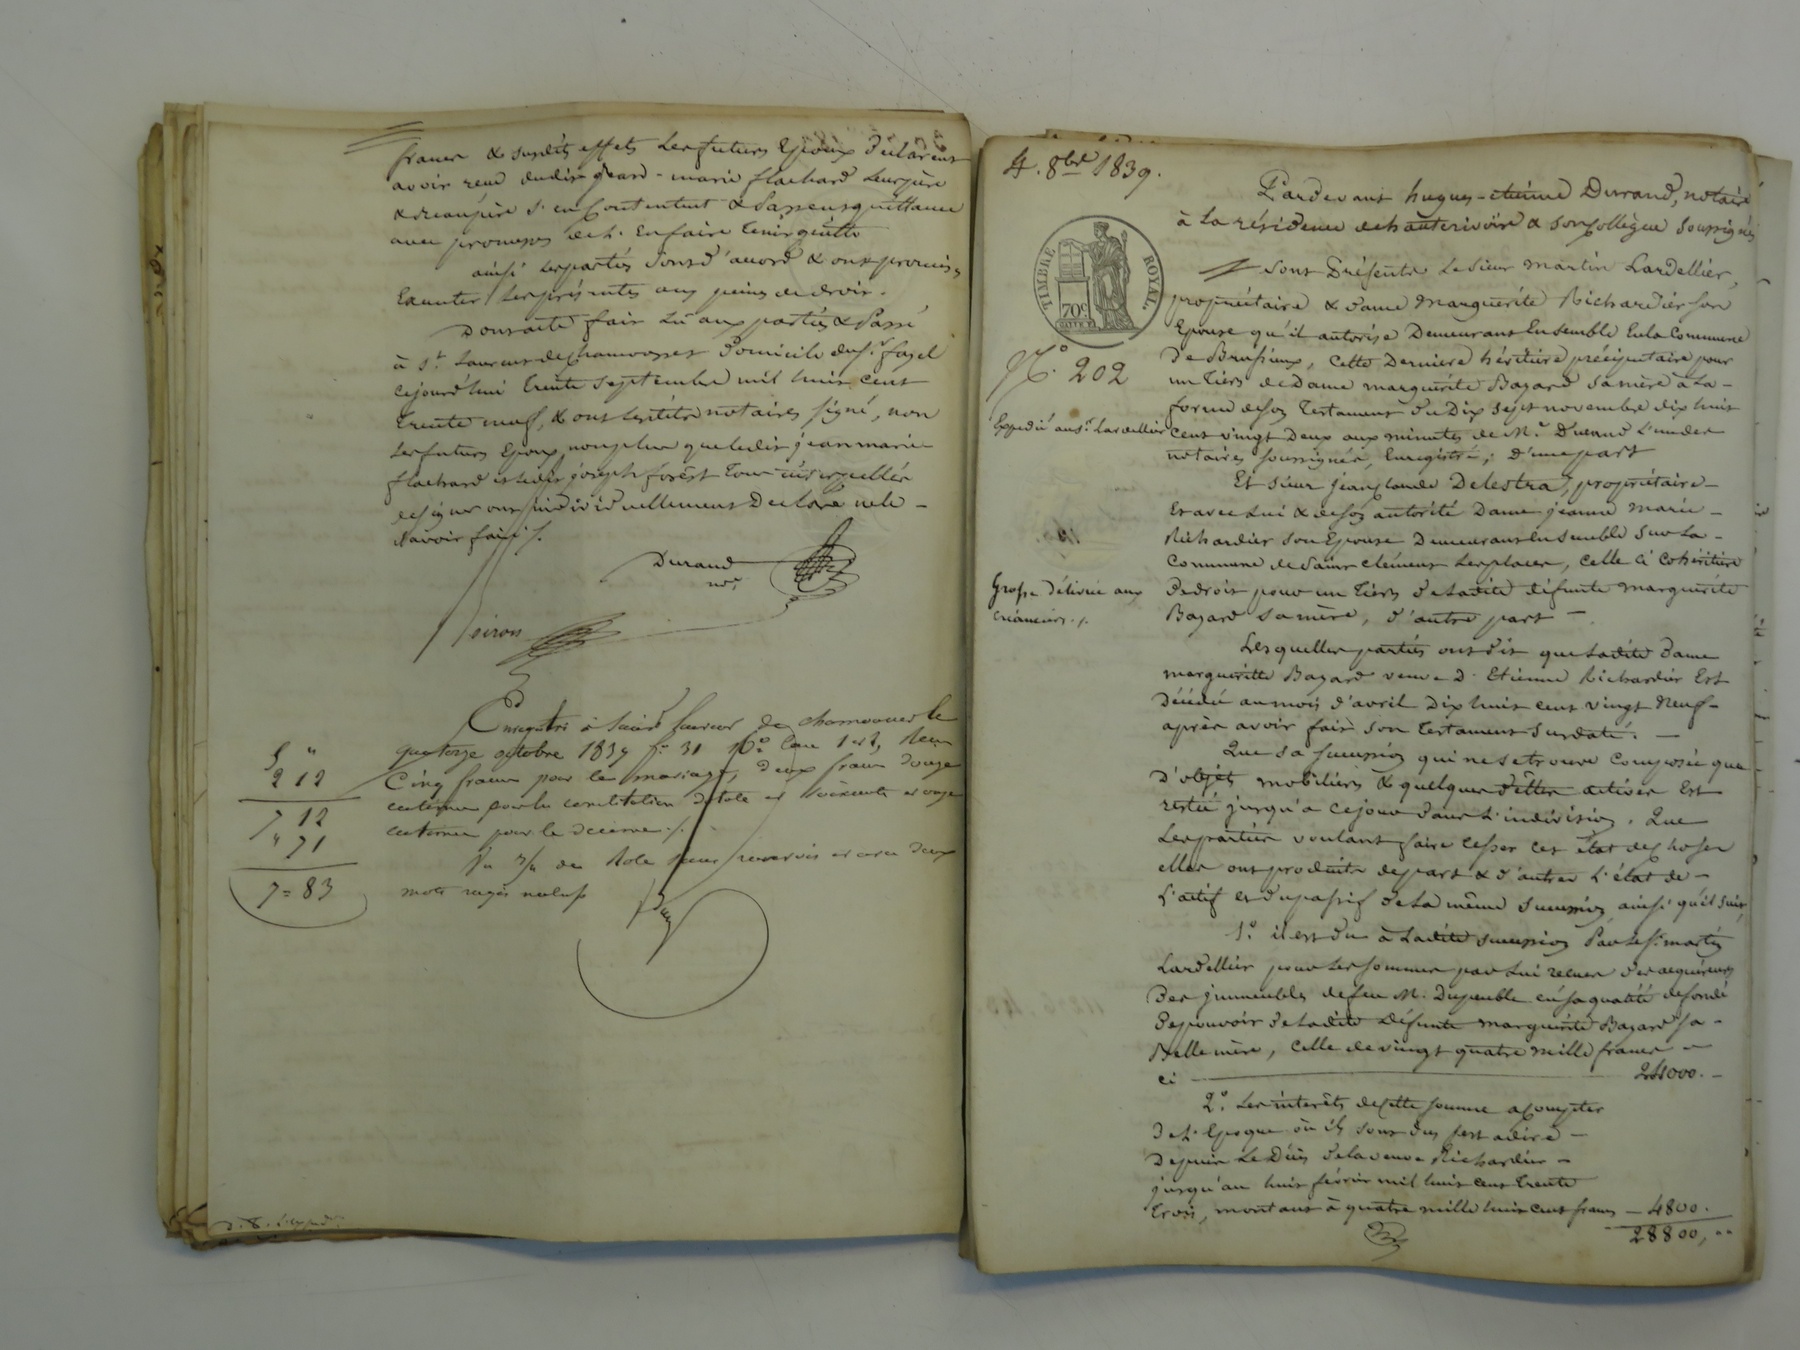 francs & susdits effets les futurs Epoux déclarent
avoir reçu dudit jean-marie flachard leur père
& beaupère s'en Contentent & Passent quittance
avec promesses de l'en faire tenir quitte
ainsi les parties sont d'accord & ont promis,
Executer les présentes aux peines de droit.
Dont acte fait lu aux parties & Passé
à St. Laurent de chamousset Domicile du sr. fayel
cejourd'hui trente septembre mil huit cent
trente neuf, & ont lesdits notaires signé, non
les futurs Epoux, non plus que ledit jean marie
flachard et ledit joseph forest tous interpellés
de signer ont individuellement Déclaré ne le -
savoir faire /.
Durand
nre.
Poiron
Enregistré à Saint Laurent de chamousset le
quatorze octobre 1839 fo. 31 Vo. Case 1 et 2, Reçu
Cinq francs pour le mariage, deux francs douze
centimes pour la constitution dotale et soixante et onze
centimes pour le decime ./.
5 "
2 12
7 12
" 71
7 = 83
mots rayés nuls
4. 8bre 1839.
TIMBRE ROYAL
70 c
No. 202
Expédié au sr. Lardellier
Grosse délivrée aux
créanciers ./.
Pardevant hugues-etienne Durand, notaire
à la résidence de hauterivoire & son Collègue soussignés
Sont Présents le sieur martin Lardellier,
propriétaire & dame marguerite Richardier son
Epouse qu'il autorise Demeurant Ensemble En la Commune
de Brussieux, cette Derniere héritière préciputaire pour
un tiers de Dame marguerite Bazard sa mère à la -
forme de son testament du Dix sept novembre dix huit
cent vingt Deux aux minutes de Me. Durand l'un des
notaires soussignés, Enregistré; d'une part
Et sieur jean claude Delestra, propriétaire -
Et avec lui & de son autorité Dame jeanne marie -
Richardier son Epouse Demeurant Ensemble sur la -
Commune de Saint clément les places, celle ci cohéritière
de droit pour un tiers de ladite défunte marguerite
Bazard sa mère, d'autre part -
Lesquelles parties ont dit que ladite Dame
marguerite Bazard veuve d'Etienne Richardier Est
Décédée au mois d'avril Dix huit cent vingt neuf -
après avoir fait son testament susdaté. -
Que sa succession qui ne se trouve Composée que
d'objets mobiliers & quelques dettes actives Est
restée jusqu'à ce jour dans l'indivision. Que
les parties voulant faire cesser cet état de choses
elles ont produit de part & d'autre l'état de -
l'actif et du passif de la même succession, ainsi qu'il suit,
1.o il est du à ladite succession Par le sr. martin
Lardellier pour les sommes par lui reçues des acquéreurs
des immeubles de feu M. Dupeuble en sa qualité de fondé
de pouvoir de ladite défunte marguerite Bazard sa -
Belle mère, celle de vingt quatre mille francs -
ci 24000. -
2.o Les intérêts de cette somme à Compter
de l'Epoque où ils sont dus c'est à dire -
depuis le Décès de la veuve Richardier -
jusqu'au huit février mil huit cent trente
trois, montant à quatre mille huit cent francs - 4800.
28800, "